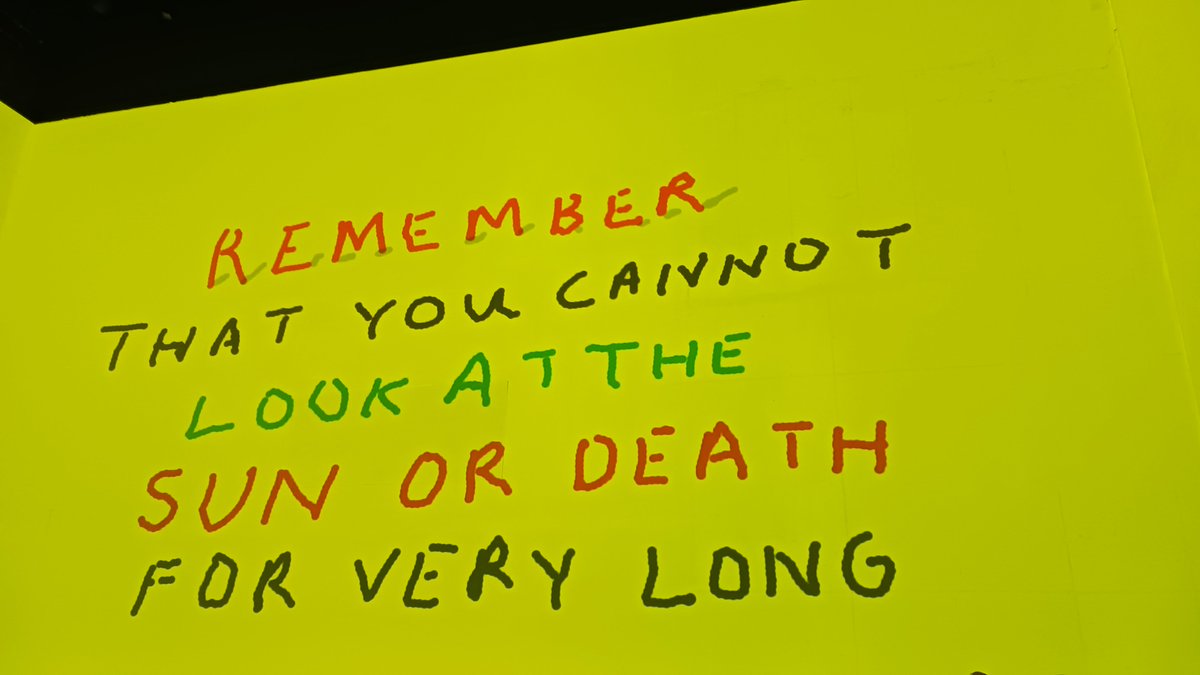 REMEMBER
THAT YOU CANNOT
LOOK AT THE
SUN OR DEATH
FOR VERY LONG